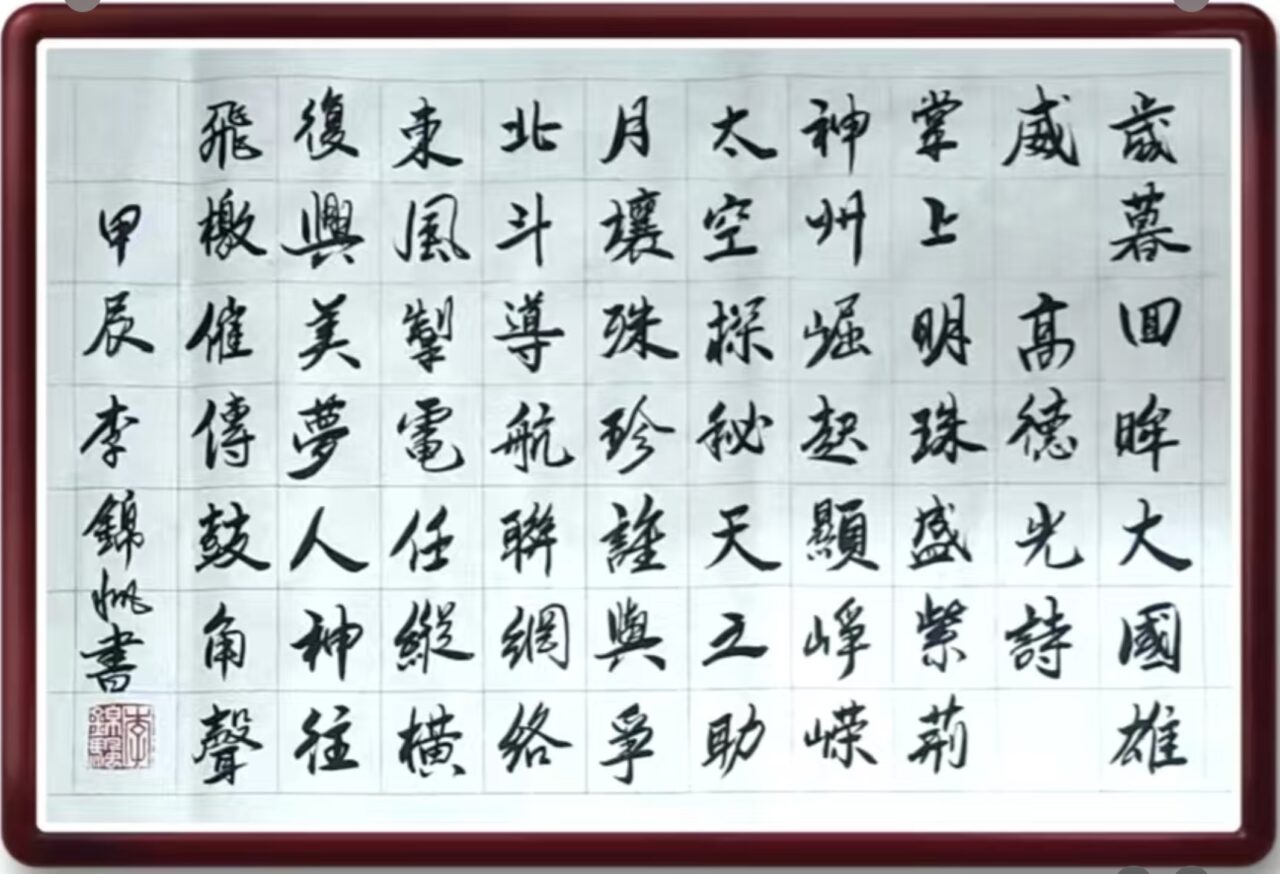 歲暮回眸大國雄
威 高德光詩
掌上明珠盛紫荊
神州崛起顯崢嶸
太空探秘天工助
月壤殊珍誰與爭
北斗導航聯網絡
東風掣電任縱橫
復興美夢人神往
飛檄催傳鼓角聲
甲辰李錦帆書